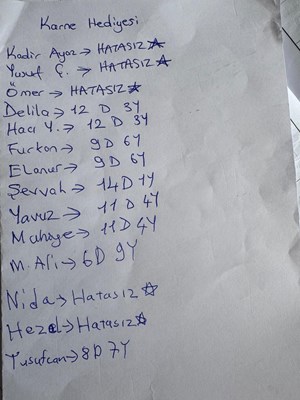 Karne Hediyesi
Kadir Ayaz → HATASIZ ☆
Yusuf Ç. → HATASIZ ☆
Ömer → HATASIZ ☆
Delila → 12 D 3Y
Hacı Y. → 12 D 3Y
Furkan → 9 D 6Y
Elanur → 9 D 6Y
Şevval → 14D 1Y
Yavuz → 11 D 4Y
Muhiye → 11 D 4Y
M. Ali → 6D 9Y
Nida → Hatasız ☆
Hezal → Hatasız ☆
Yusufcan → 8D 7Y